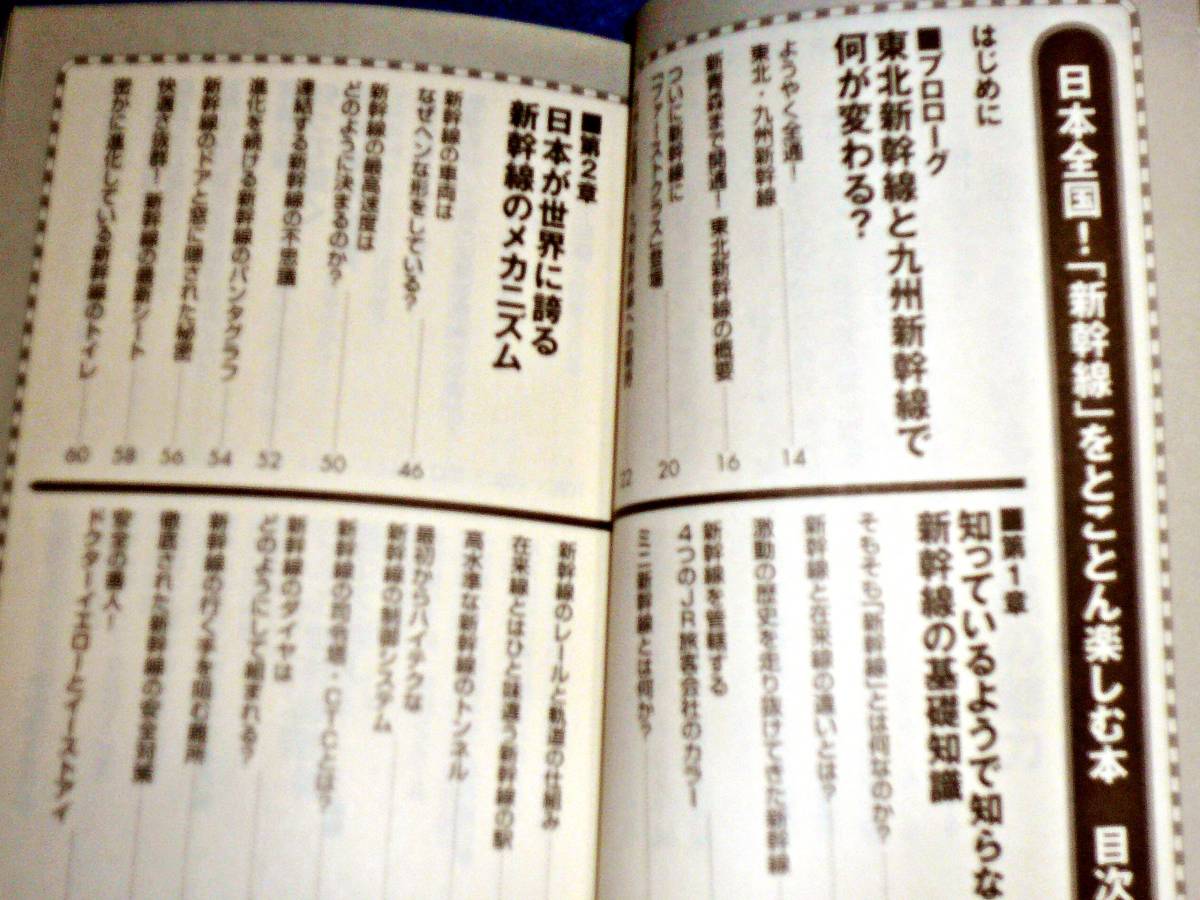 日本全国！「新幹線」をとことん楽しむ本　目次
はじめに
■プロローグ
東北新幹線と九州新幹線で
何が変わる？
ようやく全通！
東北・九州新幹線
14
新青森まで開通！　東北新幹線の概要
16
ついに新幹線に
「ファーストクラス」登場
20
22
■第1章
知っているようで知らな
新幹線の基礎知識
そもそも「新幹線」とは何なのか？
新幹線と在来線の違いとは？
激動の歴史を走り抜けてきた新幹線
新幹線を管轄する
4つのJR旅客会社のカラー
ミニ新幹線とは何か？
■第2章
日本が世界に誇る
新幹線のメカニズム
新幹線の車両は
なぜヘンな形をしている？
46
新幹線の最高速度は
どのように決まるのか？
50
連結する新幹線の不思議
52
進化を続ける新幹線のパンタグラフ
54
新幹線のドアと窓に隠された秘密
56
快適さ抜群！　新幹線の最新シート
58
密かに進化している新幹線のトイレ
60
新幹線のレールと軌道の仕組み
在来線とはひと味違う新幹線の駅
高水準な新幹線のトンネル
最初からハイテクな
新幹線の制御システム
新幹線の司令塔・CTCとは？
新幹線のダイヤは
どのようにして組まれる？
新幹線の行く手を阻む難所
徹底された新幹線の安全対策
安全の番人！
ドクターイエローとイーストアイ